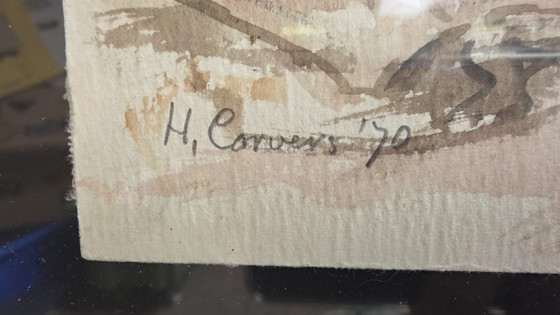 H. Corvers '70